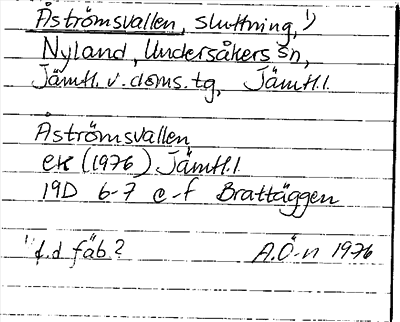 Åströmsvallen, sluttning,¹⁾
Nyland, Undersåkers sn,
Jämtl. v. doms. tg, Jämtl.l.
Åströmsvallen
ek (1976) Jämtl.l
19D 6-7 e-f Brattäggen
¹⁾f.d fäb? A.Ö-n 1976